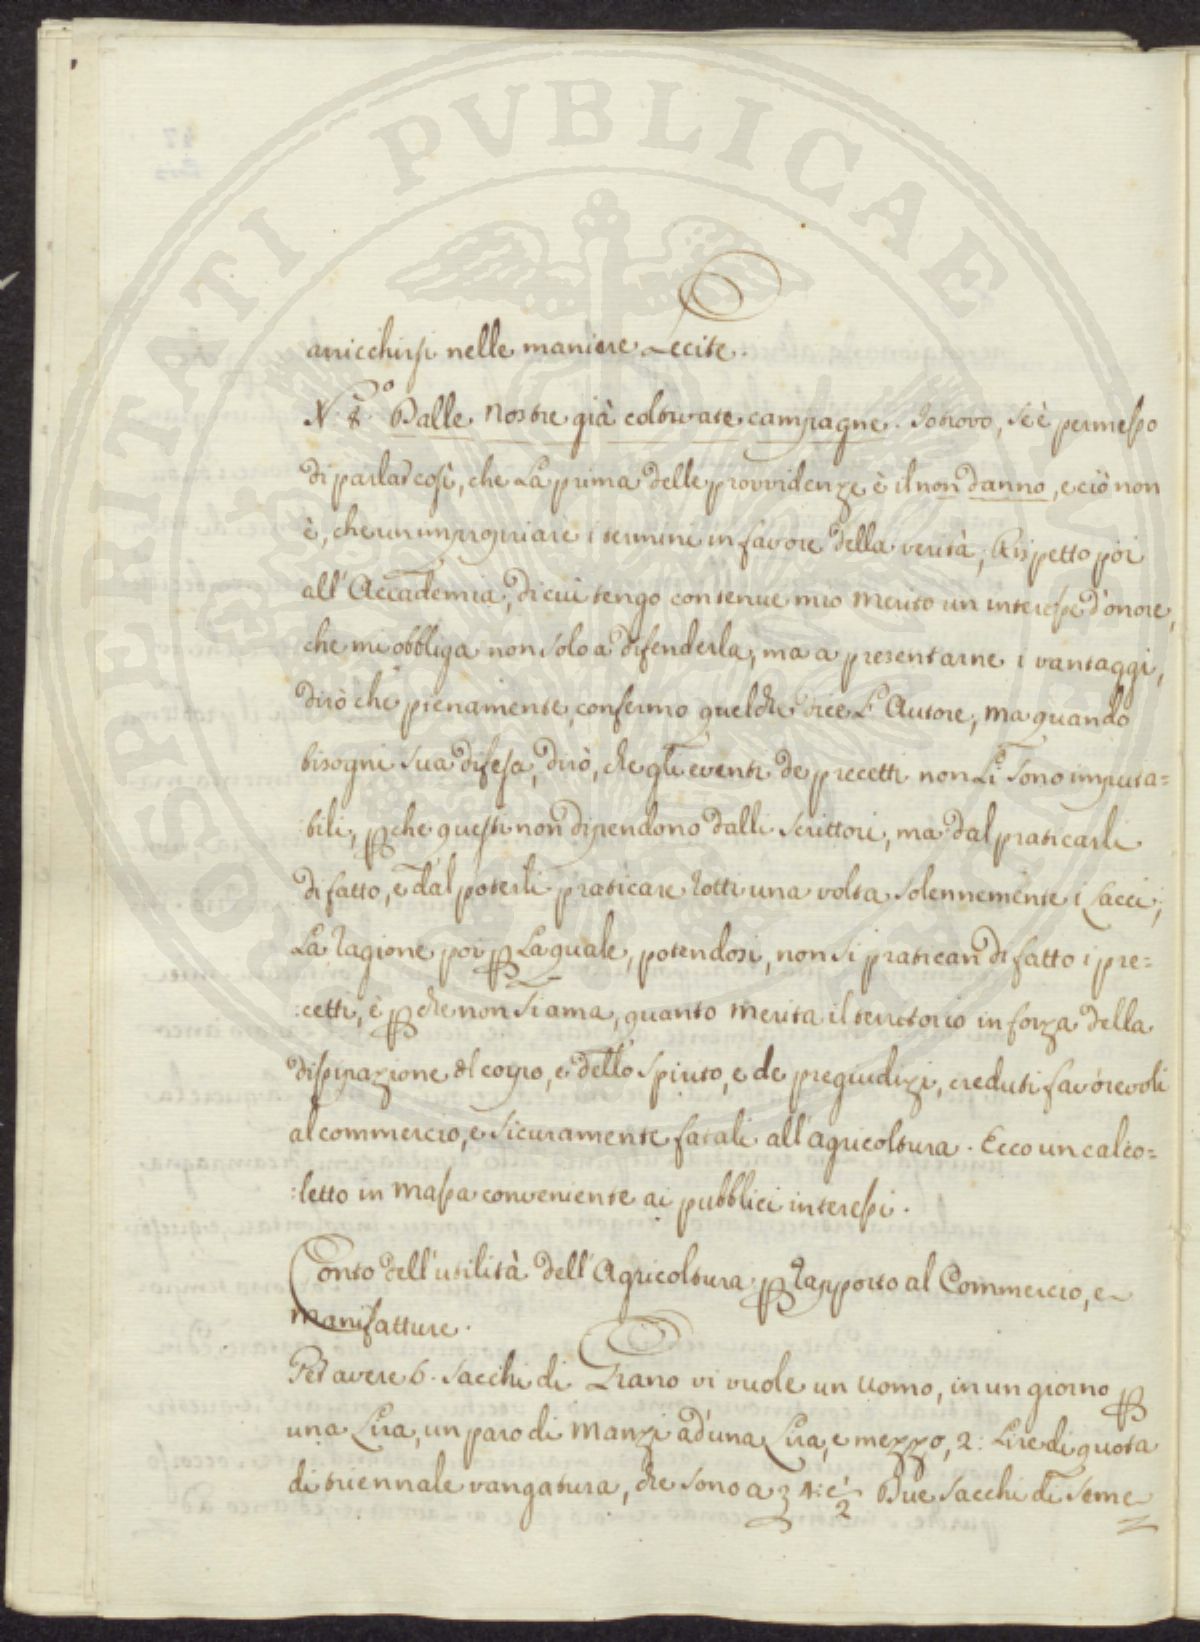 PROSPERITATI PUBLICAE AUGENDAE
arricchirsi nelle maniere Lecite.
N. 8.o Dalle nostre già coltivate campagne. Io trovo, se è permesso
di parlar così, che La prima delle provvidenze è il non danno, e ciò non
è, che un impropriare i termini in favore della verità; Rispetto poi
all'Accademia, di cui tengo con tenue mio merito un interesse d'onore,
che mi obbliga non solo a difenderla, ma a presentarne i vantaggi,
dirò che pienamente confermo quel che dice L'Autore, ma quando
bisogni sua difesa, dirò, che gli eventi de precetti non Li sono imputa=
bili, pche questi non dipendono dalli scrittori, ma dal praticarli
di fatto, e dal poterli praticare rotti una volta solennemente i Lacci;
La ragione poi p La quale, potendosi, non si pratican di fatto i pre=
:cetti, è p che non si ama, quanto merita il territorio in forza della
dissipazione del corpo, e dello spirito, e de pregiudizi, creduti favorevoli
al commercio, e sicuramente fatali all'agricoltura. Ecco un calco=
:letto in massa conveniente ai pubblici interessi.
Conto dell'utilità dell'Agricoltura p rapporto al Commercio, e
Manifatture.
Per avere 6. sacchi di Grano vi vuole un uomo, in un giorno p
una Lira, un paro di Manzi ad una Lira, e mezzo, 2: Lire di quota
di triennale vangatura, che sono a 4: e 1/2 Due sacchi di seme